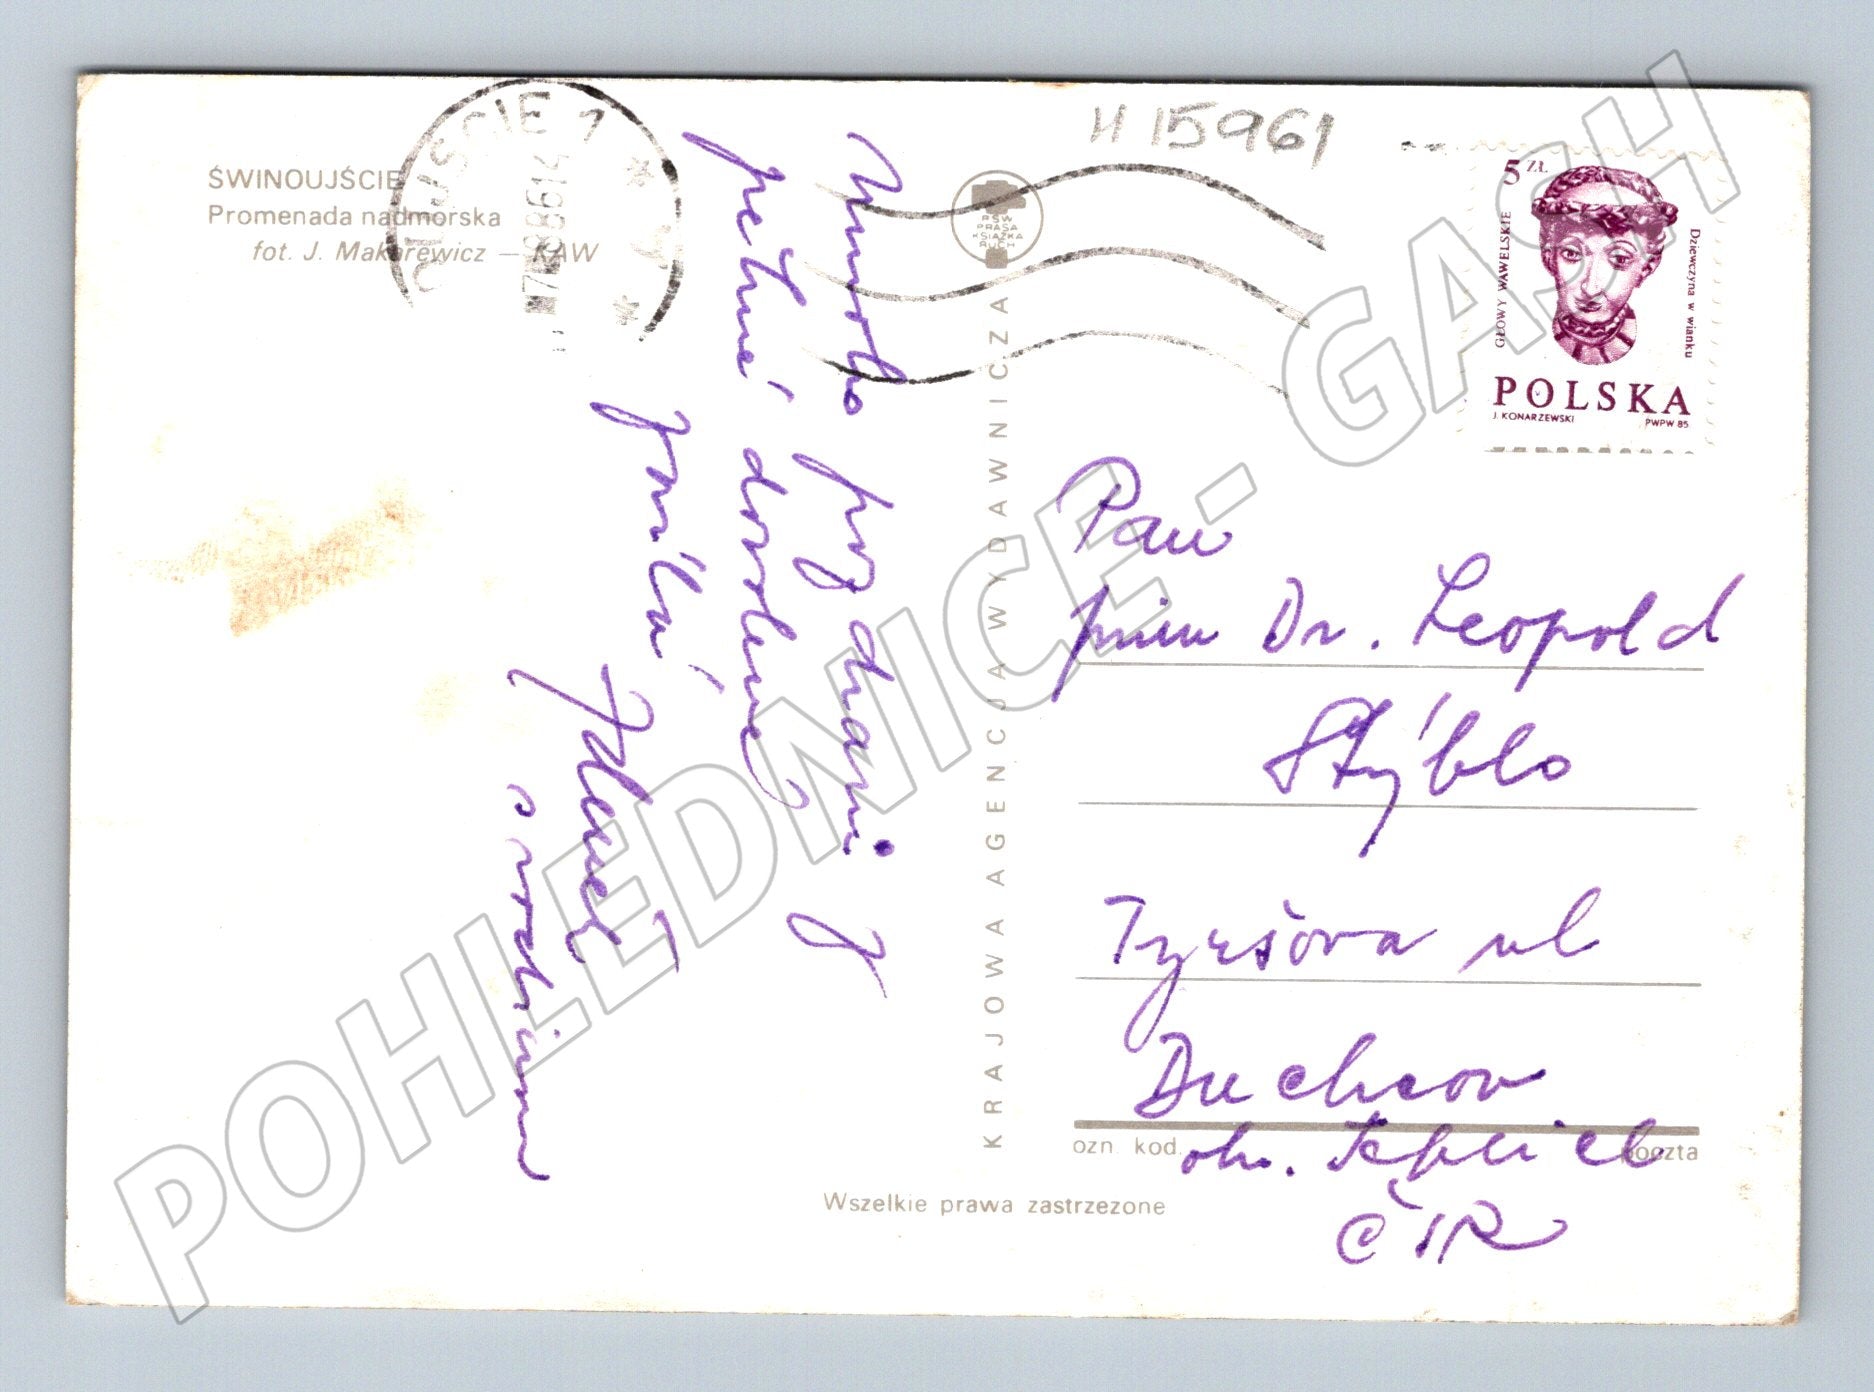 ŚWINOUJŚCIE
Promenada nadmorska
fot. J. Makarewicz — KAW
UJŚCIE 1
H 15961
RSW
PRASA
KSIĄŻKA
RUCH
5 ZŁ
GŁOWY WAWELSKIE
Dziewczyna w wianku
POLSKA
J. KONARZEWSKI
PWPW 85
Mnoho pozdravů z
pěkné dovolené
posílá
Zdeněk
s rodinou
KRAJOWA AGENCJA WYDAWNICZA
Pan
prim Dr. Leopold
Stýblo
Tyršova ul
Duchcov
ozn. kod. poczta
okr. Teplice
ČSR
Wszelkie prawa zastrzeżone
POHLEDNICE - GASH